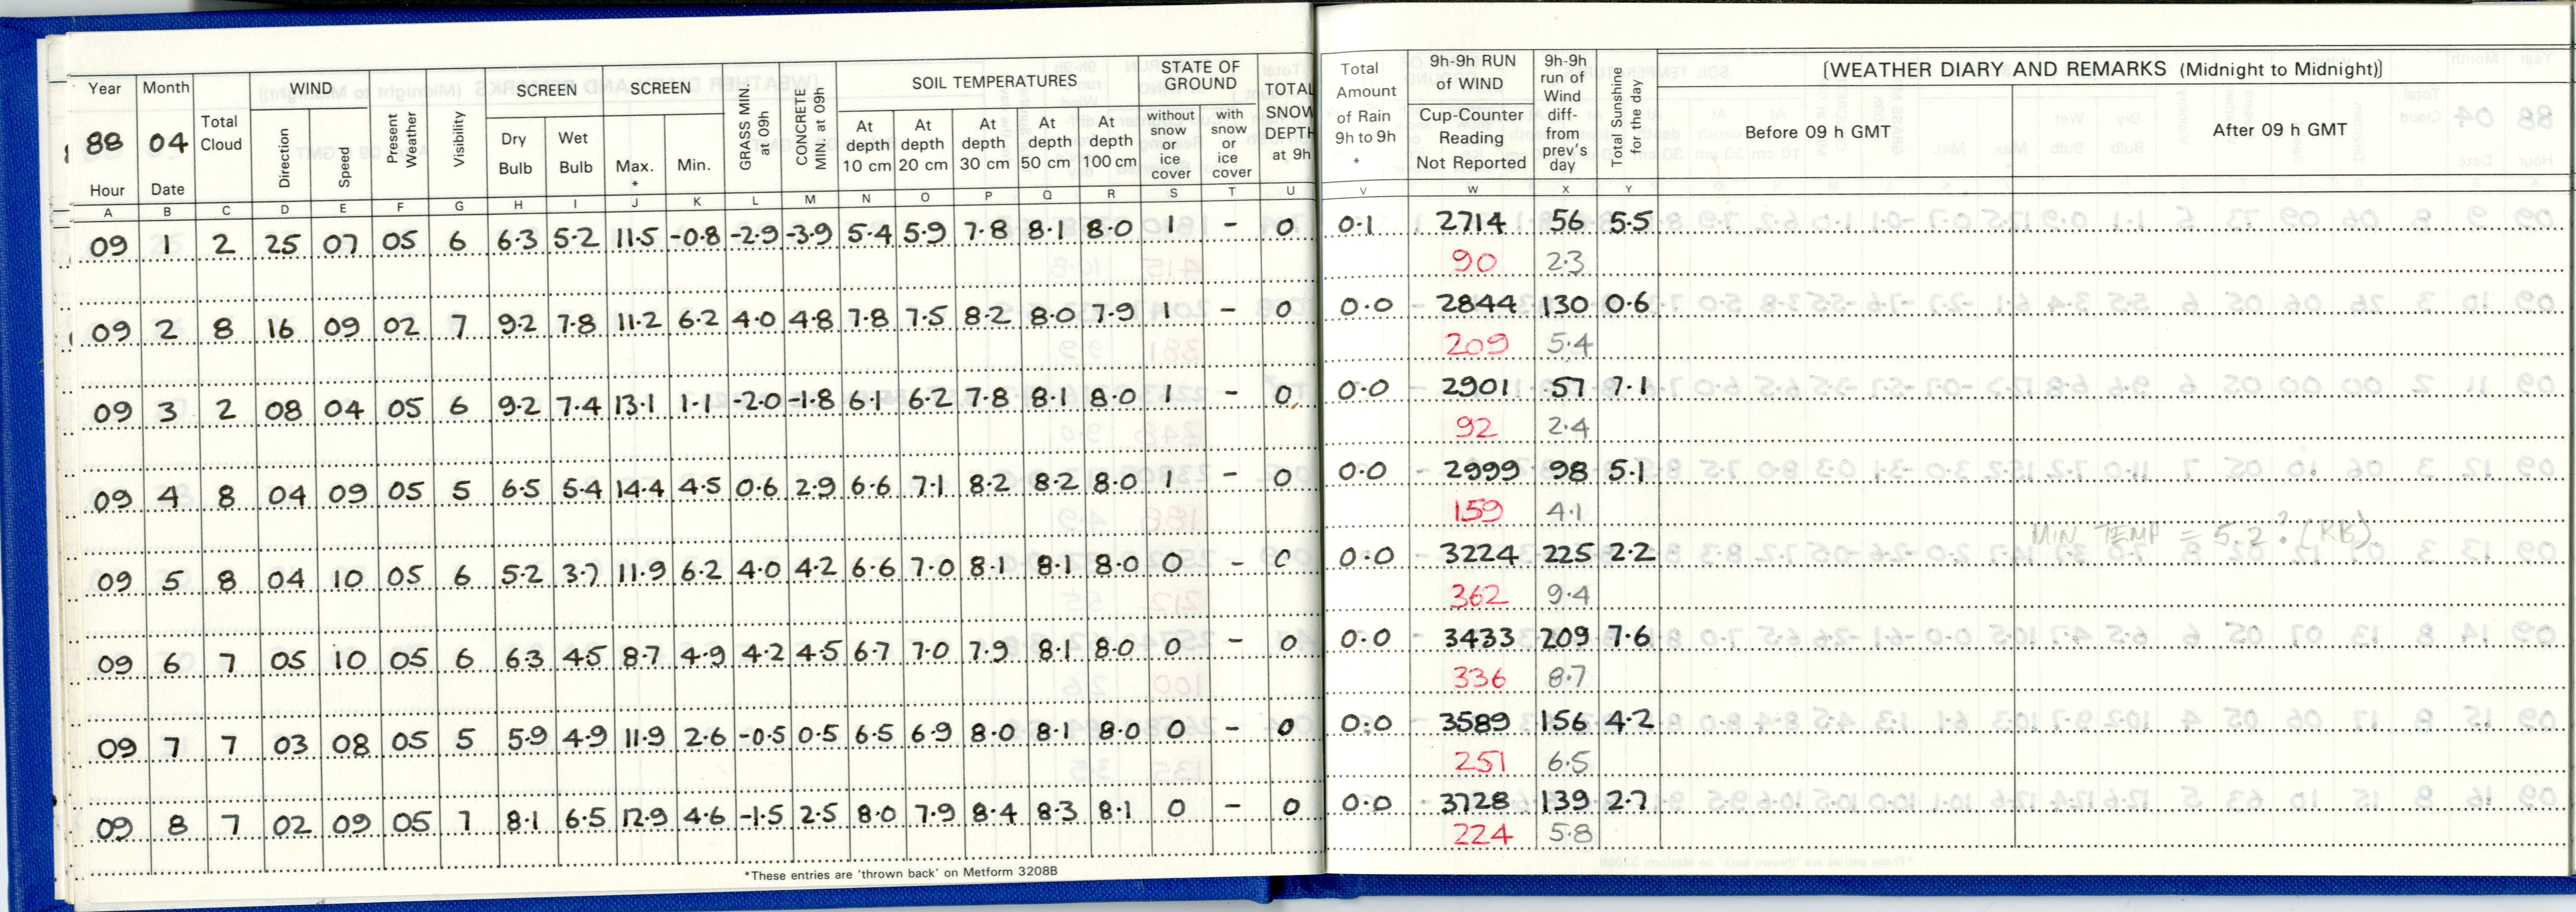 Year Month WIND SCREEN SCREEN SOIL TEMPERATURES STATE OF GROUND
88 04 Total Cloud Direction Speed Present Weather Visibility Dry Bulb Wet Bulb Max. * Min. GRASS MIN. at 09h CONCRETE MIN. at 09h At depth 10 cm At depth 20 cm At depth 30 cm At depth 50 cm At depth 100 cm without snow or ice cover with snow or ice cover TOTAL SNOW DEPTH at 9h
Hour Date
A B C D E F G H I J K L M N O P Q R S T U
09 1 2 25 07 05 6 6.3 5.2 11.5 -0.8 -2.9 -3.9 5.4 5.9 7.8 8.1 8.0 1 - 0
09 2 8 16 09 02 7 9.2 7.8 11.2 6.2 4.0 4.8 7.8 7.5 8.2 8.0 7.9 1 - 0
09 3 2 08 04 05 6 9.2 7.4 13.1 1.1 -2.0 -1.8 6.1 6.2 7.8 8.1 8.0 1 - 0
09 4 8 04 09 05 5 6.5 5.4 14.4 4.5 0.6 2.9 6.6 7.1 8.2 8.2 8.0 1 - 0
09 5 8 04 10 05 6 5.2 3.7 11.9 6.2 4.0 4.2 6.6 7.0 8.1 8.1 8.0 0 - 0
09 6 7 05 10 05 6 6.3 4.5 8.7 4.9 4.2 4.5 6.7 7.0 7.9 8.1 8.0 0 - 0
09 7 7 03 08 05 5 5.9 4.9 11.9 2.6 -0.5 0.5 6.5 6.9 8.0 8.1 8.0 0 - 0
09 8 7 02 09 05 7 8.1 6.5 12.9 4.6 -1.5 2.5 8.0 7.9 8.4 8.3 8.1 0 - 0
*These entries are 'thrown back' on Metform 3208B
Total Amount of Rain 9h to 9h * 9h-9h RUN of WIND Cup-Counter Reading Not Reported 9h-9h run of Wind diff- from prev's day Total Sunshine for the day [WEATHER DIARY AND REMARKS (Midnight to Midnight)]
Before 09 h GMT After 09 h GMT
V W X Y
0.1 2714 56 5.5
90 2.3
0.0 2844 130 0.6
209 5.4
0.0 2901 57 7.1
92 2.4
0.0 2999 98 5.1
159 4.1
MIN TEMP = 5.2? (RB)
0.0 3224 225 2.2
362 9.4
0.0 3433 209 7.6
336 8.7
0.0 3589 156 4.2
251 6.5
0.0 3728 139 2.7
224 5.8